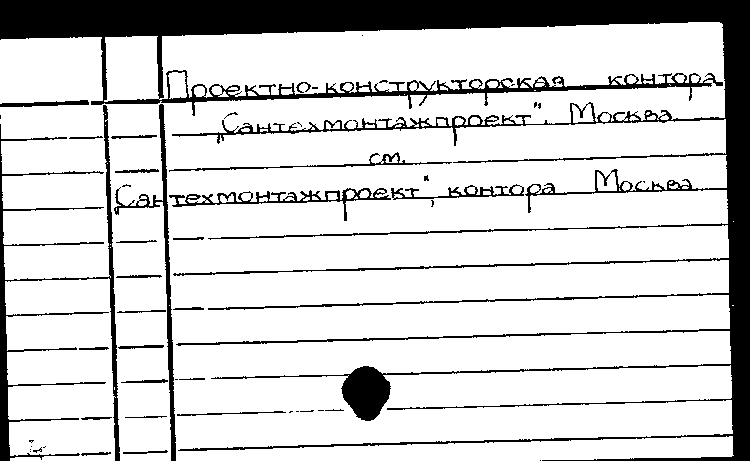 Проектно-конструкторская контора
„Сантехмонтажпроект". Москва
см.
„Сантехмонтажпроект", контора Москва